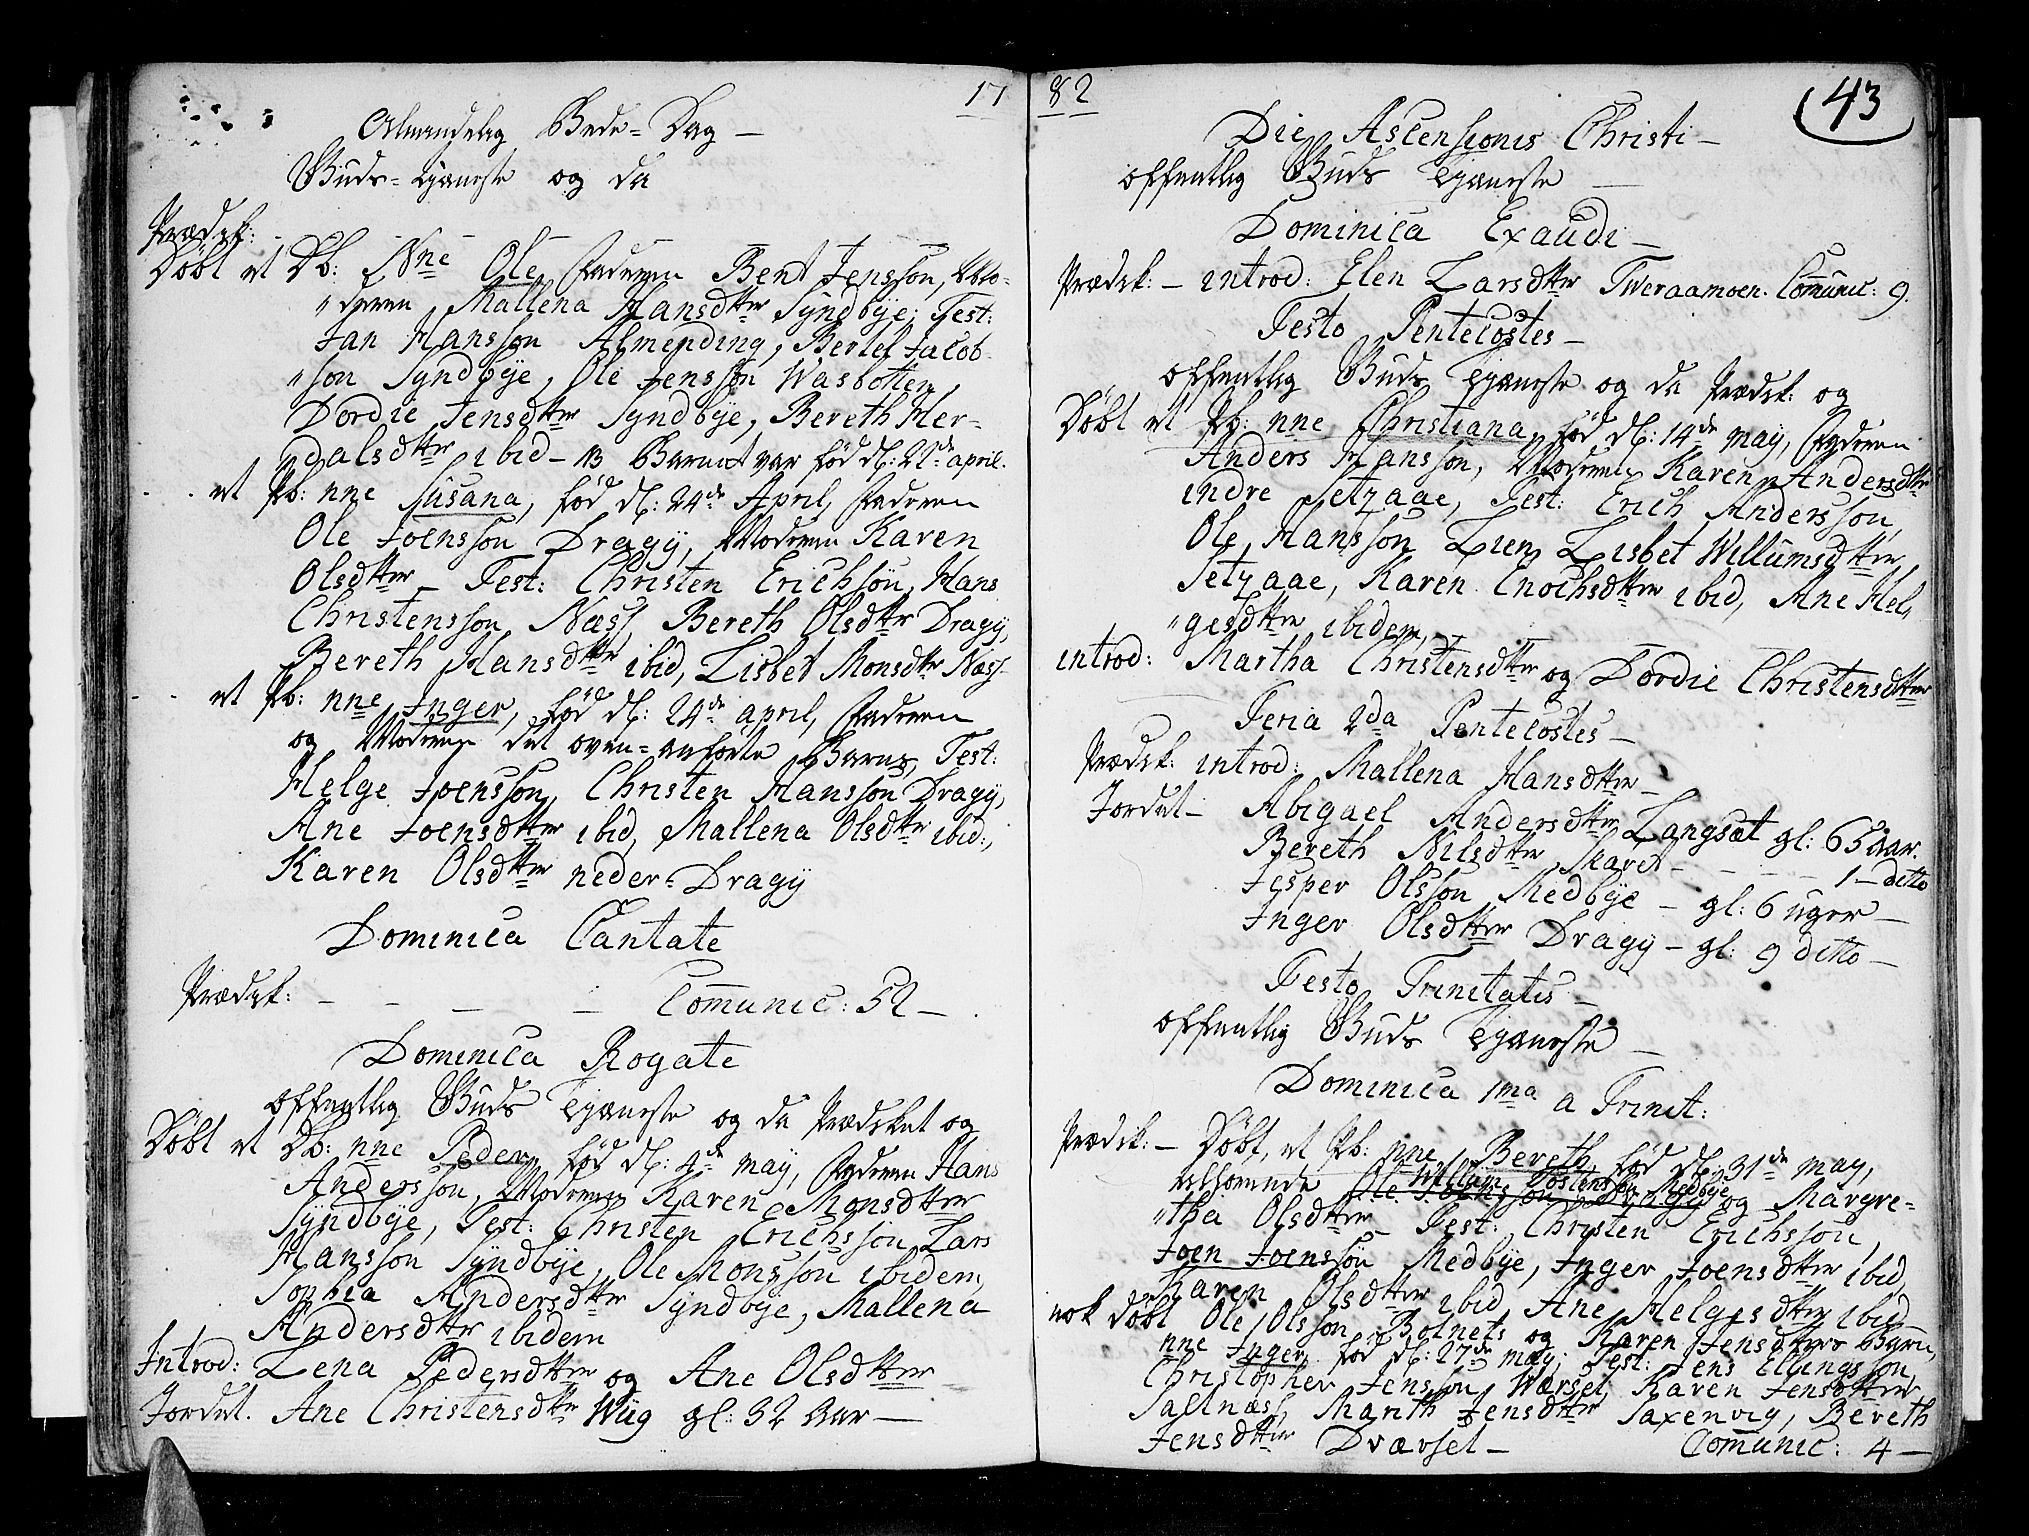 17
Almindelig Bede-Dag —
Guds-tjæneste og da
Prædsk: — — — — —
Døbt et Db: Nne Ole, Faderen Bent Jensson, Mo-
"deren Mallena Hansdttr Syndbye; Test:
Jan Hansson Almending, Bertel Jacob-
"son Syndbye, Ole Jensson Wasbotten,
Dordie Jensdttr Syndbye, Bereth Her-
dalsdttr ibid — NB Barnet var fød d: 22de april.
- - et Pb: nne Susana, fød d: 24de April, Faderen
Ole Joensson Dragy, Moderen Karen
Olsdttr — Test: Christen Erichsøn, Hans
Christensson Næss, Bereth Olsdttr Dragy,
Bereth Hansdttr ibid, Lisbet Monsdttr Næss-
- - et Pb: nne Inger, fød d: 24de april, Faderen
og Moderen det oven-anførte Barns, Test:
Helge Joensson, Christen Hansson Dragy,
Ane Joensdttr ibid, Mallena Olsdttr ibid:,
Karen Olsdttr neder-Dragy
Dominica Cantate
Prædsk: — — — — Communic: 52 —.
Dominica Rogate
offentlig Guds Tjæneste og da Prædsket og
Døbt et Db: nne Peder, fød d: 4de may, Faderen Hans
Andersson, Moderen Karen Monsdttr
Syndbye, Test: Christen Erichsson, Lars
Hansson Syndbye, Ole Monsson ibidem,
Sophia Andersdttr Syndbye, Mallena
Andersdttr ibidem
Introd: Lena Pedersdttr og Ane Olsdttr —
Jordet. Ane Christensdttr Wiig gl: 32 Aar —
82
43
Die Ascensionis Christi —
offentlig Guds Tjæneste —
Dominica Exaudi —
Prædsk: — introd: Elen Larsdttr Tweraamoen. Comunic: 9.
Festo Pentecostes —
offentlig Guds Tjæneste og da Prædsk: og
Døbt et Pb: nne Christiana, fød d: 14de may, Faderen
Anders Hansson, Moderen Karen Andersdttr
indre Setzaae, Test: Erich Andersson,
Ole Hansson Lien, Lisbet Willumsdttr,
Setzaae, Karen Enochsdttr ibid, Ane Hel-
"gesdttr ibidem,
introd: Martha Christensdttr og Dordie Christensdttr
Feria 2da Pentecostes —
Prædsk: introd: Mallena Hansdttr —
Jordet — Abigael Andersdttr Langsæt gl: 65 aar.
Bereth Nilsdttr - - - 1 — ditto
Jesper Olsson Medbye — gl: 6 uger —
Inger Olsdttr Dragy — gl: 9 ditto —
Festo Trinitatis —
offentlig Guds Tjæneste —
Dominica 1ma a Trinit:
Prædsk: — Døbt, et Pb: nne Bereth, fød d: 31de may,
Willum Tostensøn Medbye
Ole Joensson Dragy og Margre-
"tha Olsdttr — Test: Christen Erichsson,
Joen Joenssøn Medbye, Inger Joensdttr ibid,
Karen Olsdttr ibid, Ane Helgesdttr ibid —
nok døbt Ole Olsson Botnets og Karen Jensdttrs Barn,
nne Inger, fød d: 27de may, Test: Jens Ellingsson,
Christopher Jensson Wærset, Karen Jensdttr
Saltnæss, Marith Jensdttr Saxenvig, Bereth
Jensdttr Dværset — Comunic: 4 —